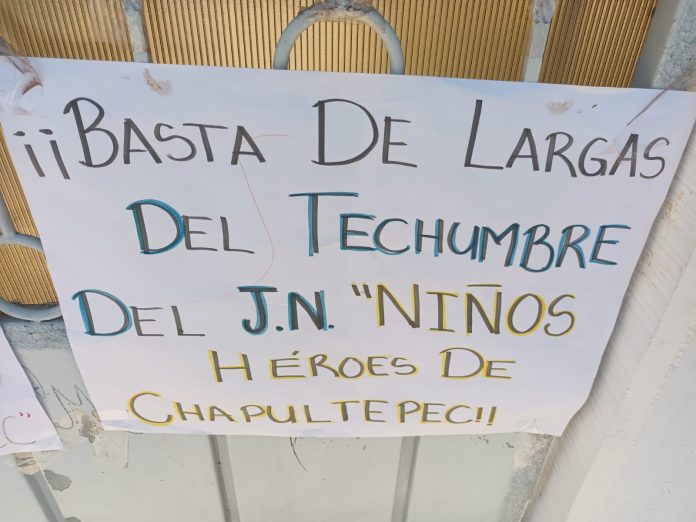 ¡¡BASTA DE LARGAS
DEL TECHUMBRE
DEL J.N. "NIÑOS
HÉROES DE
CHAPULTEPEC!!
C"